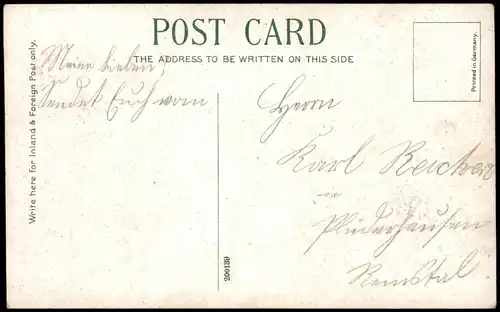 POST CARD
THE ADDRESS TO BE WRITTEN ON THIS SIDE
Write here for Inland & Foreign Post only.
Printed in Germany.
Meine Lieben,
Sendet Euch vom
200139
Herrn
Karl
in
Plüderhausen
Remstal.